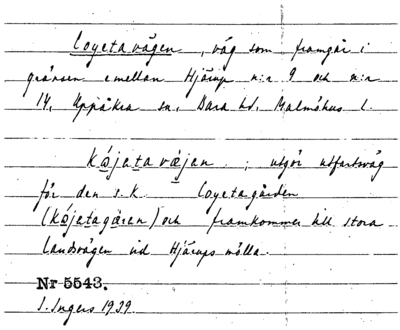 Loyetavägen, väg som framgår i
gränsen emellan Hjärup n:r 9 och n:r
14, Uppåkra sn, Bara hd, Malmöhus l.
kǿjetavæjen ; utgör utfartsväg
för den s.k. Loyetagården
(kǿjetagåren) och framkommer till stora
landsvägen vid Hjärups mölla.
Nr 5543.
I. Ingers 1939.